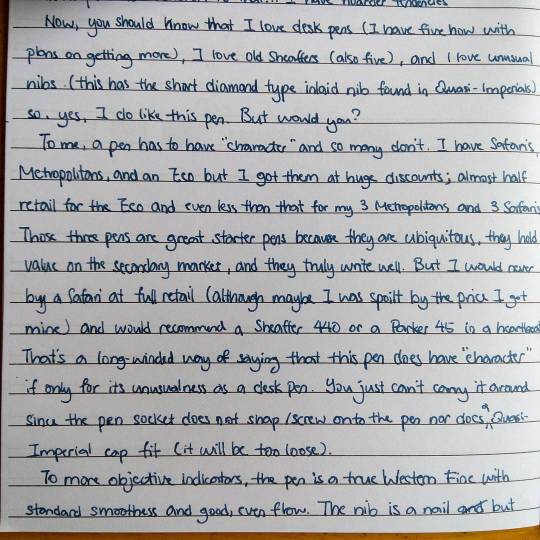 I have hoarder tendencies
Now, you should know that I love desk pens (I have five now with
plans on getting more), I love old Sheaffers (also five), and I love unusual
nibs (this has the short diamond type inlaid nib found in Quasi-Imperials)
so, yes, I do like this pen. But would you?
To me, a pen has to have "character" and so many don't. I have Safaris,
Metropolitans, and an Eco but I got them at huge discounts; almost half
retail for the Eco and even less than that for my 3 Metropolitans and 3 Safaris
Those three pens are great starter pens because they are ubiquitous, they hold
value on the secondary market, and they truly write well. But I would never
buy a Safari at full retail (although maybe I was spoilt by the price I got
mine) and would recommend a Sheaffer 440 or a Parker 45 in a heartbeat
That's a long-winded way of saying that this pen does have "character"
if only for its unusualness as a desk pen. You just can't carry it around
since the pen socket does not snap/screw onto the pen nor does a Quasi-
Imperial cap fit (it will be too loose).
To more objective indicators, the pen is a true Western Fine with
standard smoothness and good, even flow. The nib is a nail but